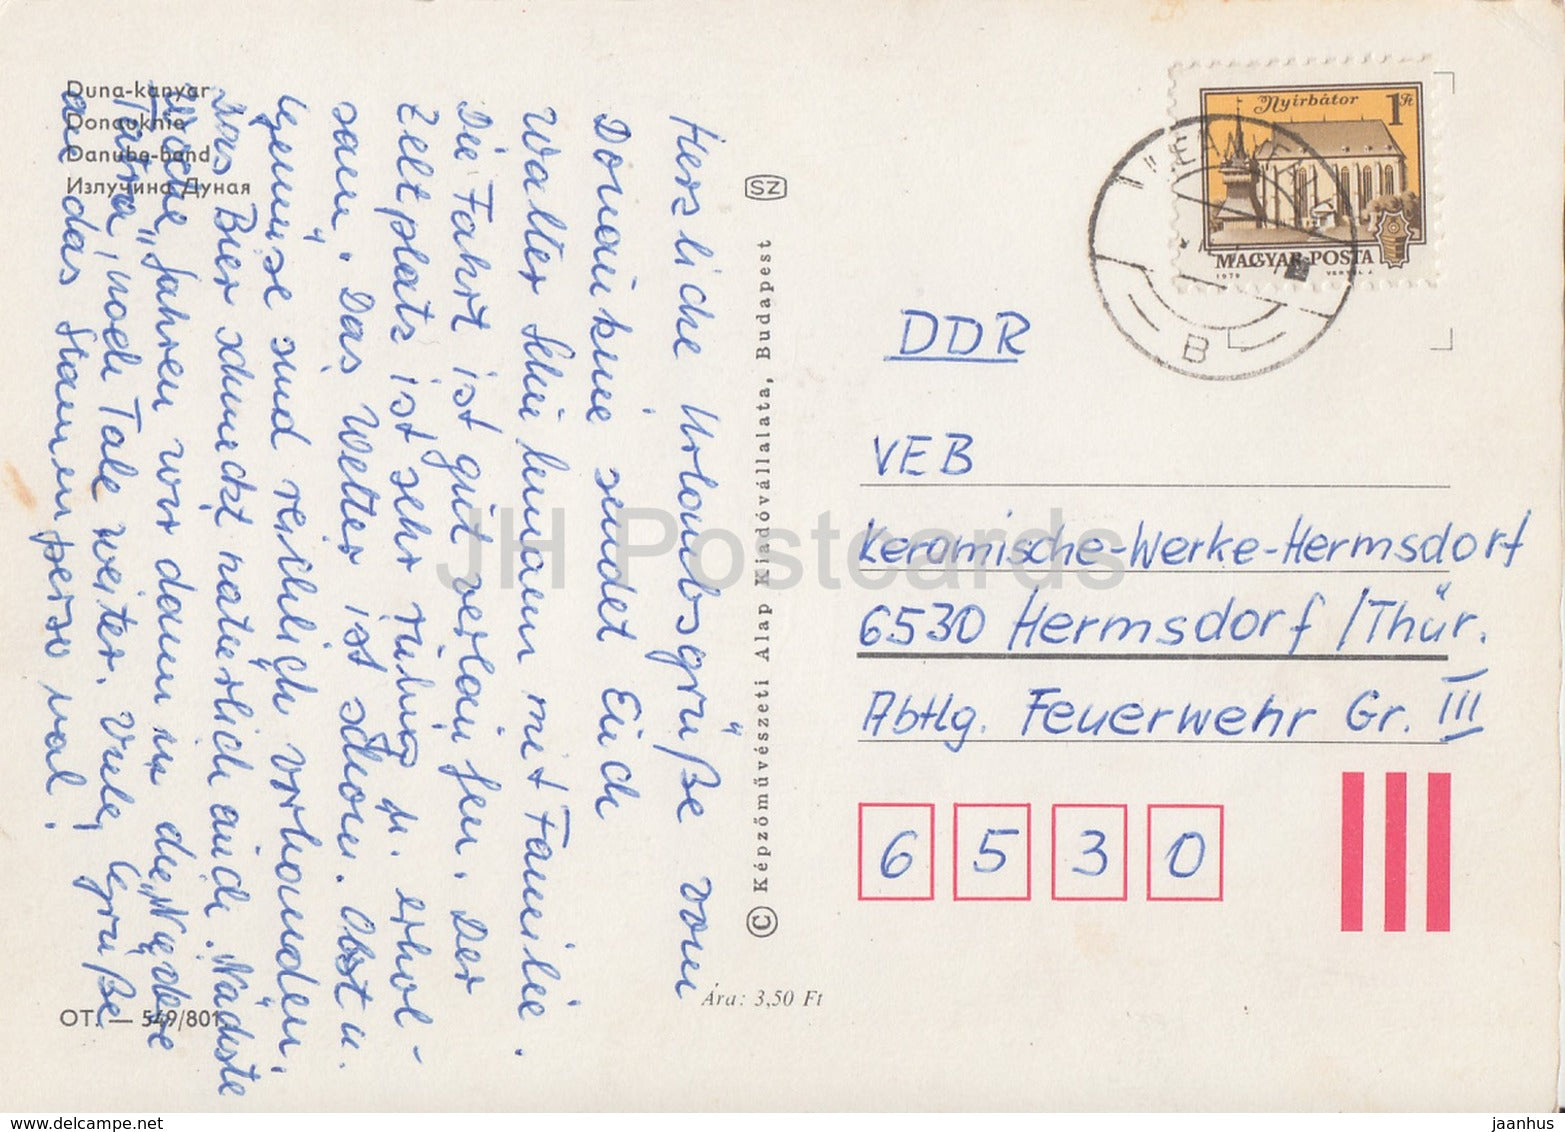 Duna-kanyar
Donauknie
Danube-bend
Излучина Дуная
Herzliche Urlaubsgrüße vom
Donauknie sendet Euch
Walter Schulemann mit Familie.
Die Fahrt ist gut verlaufen. Der
Zeltplatz ist sehr ruhig u. erhol-
sam. Das Wetter ist schön. Obst u.
Gemüse sind reichlich vorhanden.
Das Bier schmeckt natürlich auch. Nächste
Woche fahren wir dann in die "Niedere
Tatra" noch Tale weiter. Viele Grüße
an das Stammpersonal.
OT. — 549/801
SZ
© Képzőművészeti Alap Kiadóvállalata, Budapest
Ára: 3,50 Ft
Nyírbátor
1 Ft
MAGYAR POSTA
1979
B
DDR
VEB
Keramische-Werke-Hermsdorf
6530 Hermsdorf /Thür.
Abtlg. Feuerwehr Gr. III
6 5 3 0
JH Postcards
delcampe.net
jaanhus